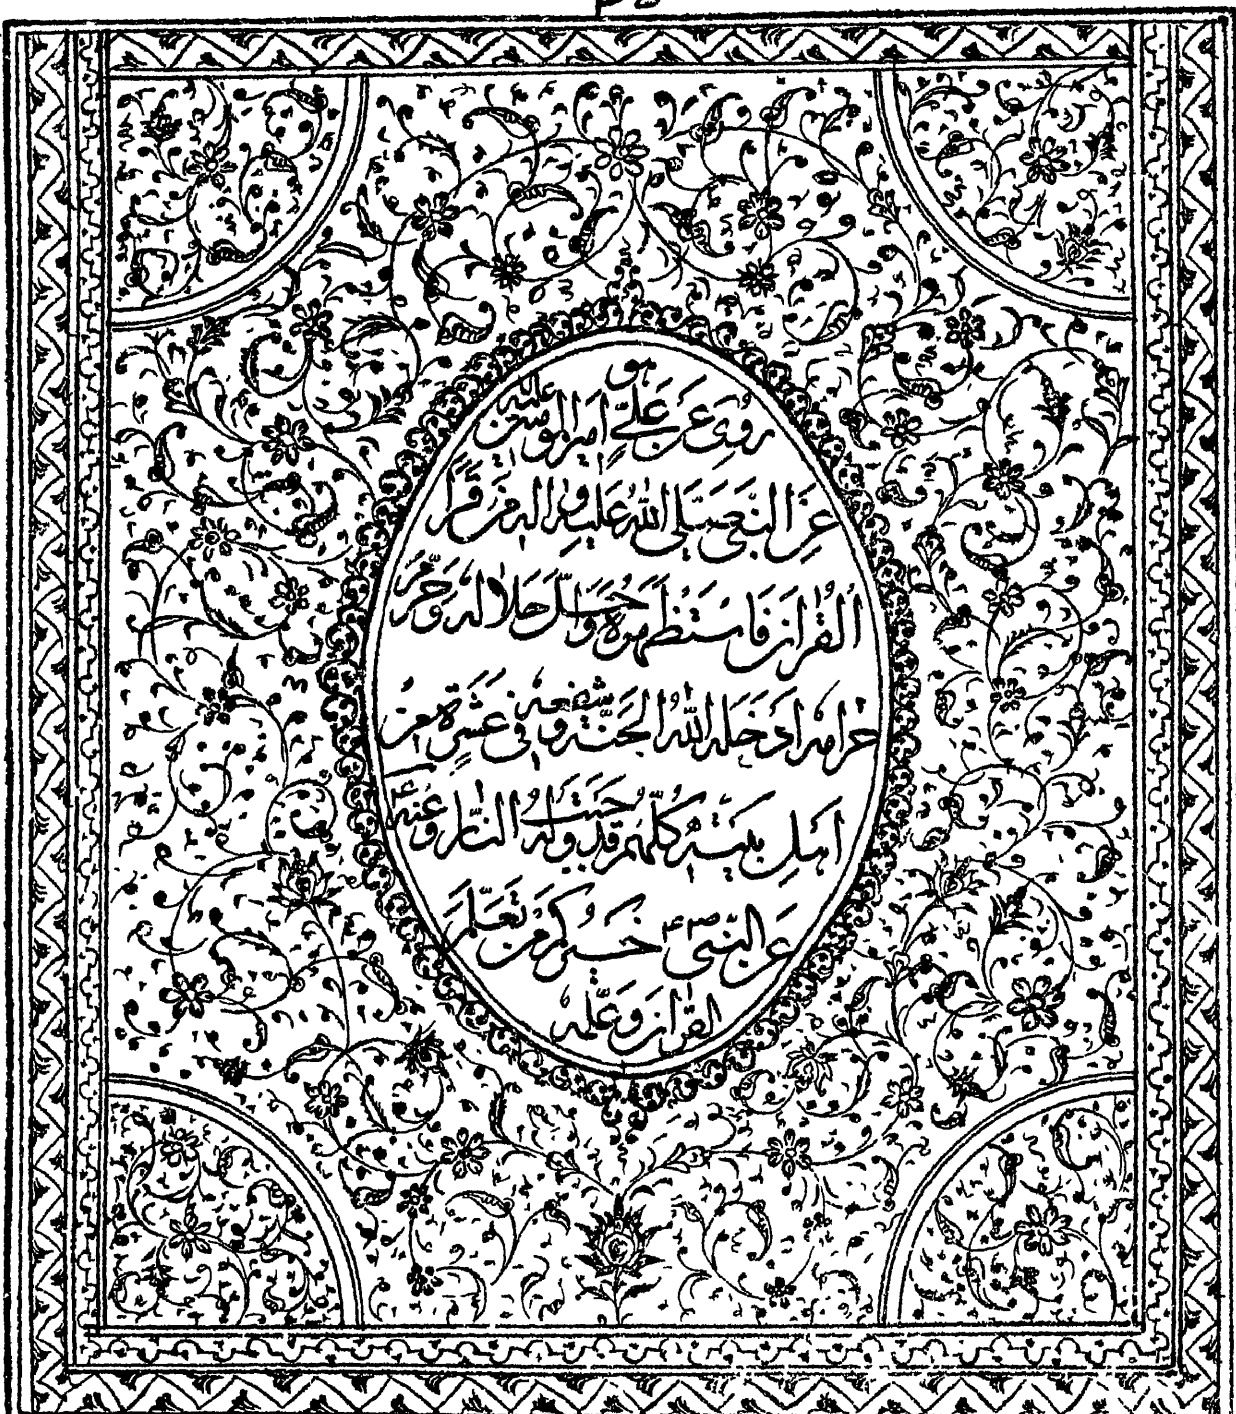 هو
رُوِیَ عَن عَلِیٍّ أمیر المؤمنین علیه
عَنِ النَّبِی صَلَّی اللّهُ عَلَیهِ وَ اله مَن قَرَأ
القُرانَ فَاستَظهَرهُ وَ حَلَّلَ حَلالهُ وَ حَرَّمَ
حَرامهُ ادخَلهُ اللّهُ الجَنّه و شفّعهُ فی عَشَرَهٍ مِن
اَهلِ بَیتِه کُلّهم قد وجبت له النّار وَ عَنهُ ع
عَن النَّبی ص م خَیرُکُم مَن تَعَلَّمَ
القرانَ وَ عَلّمه